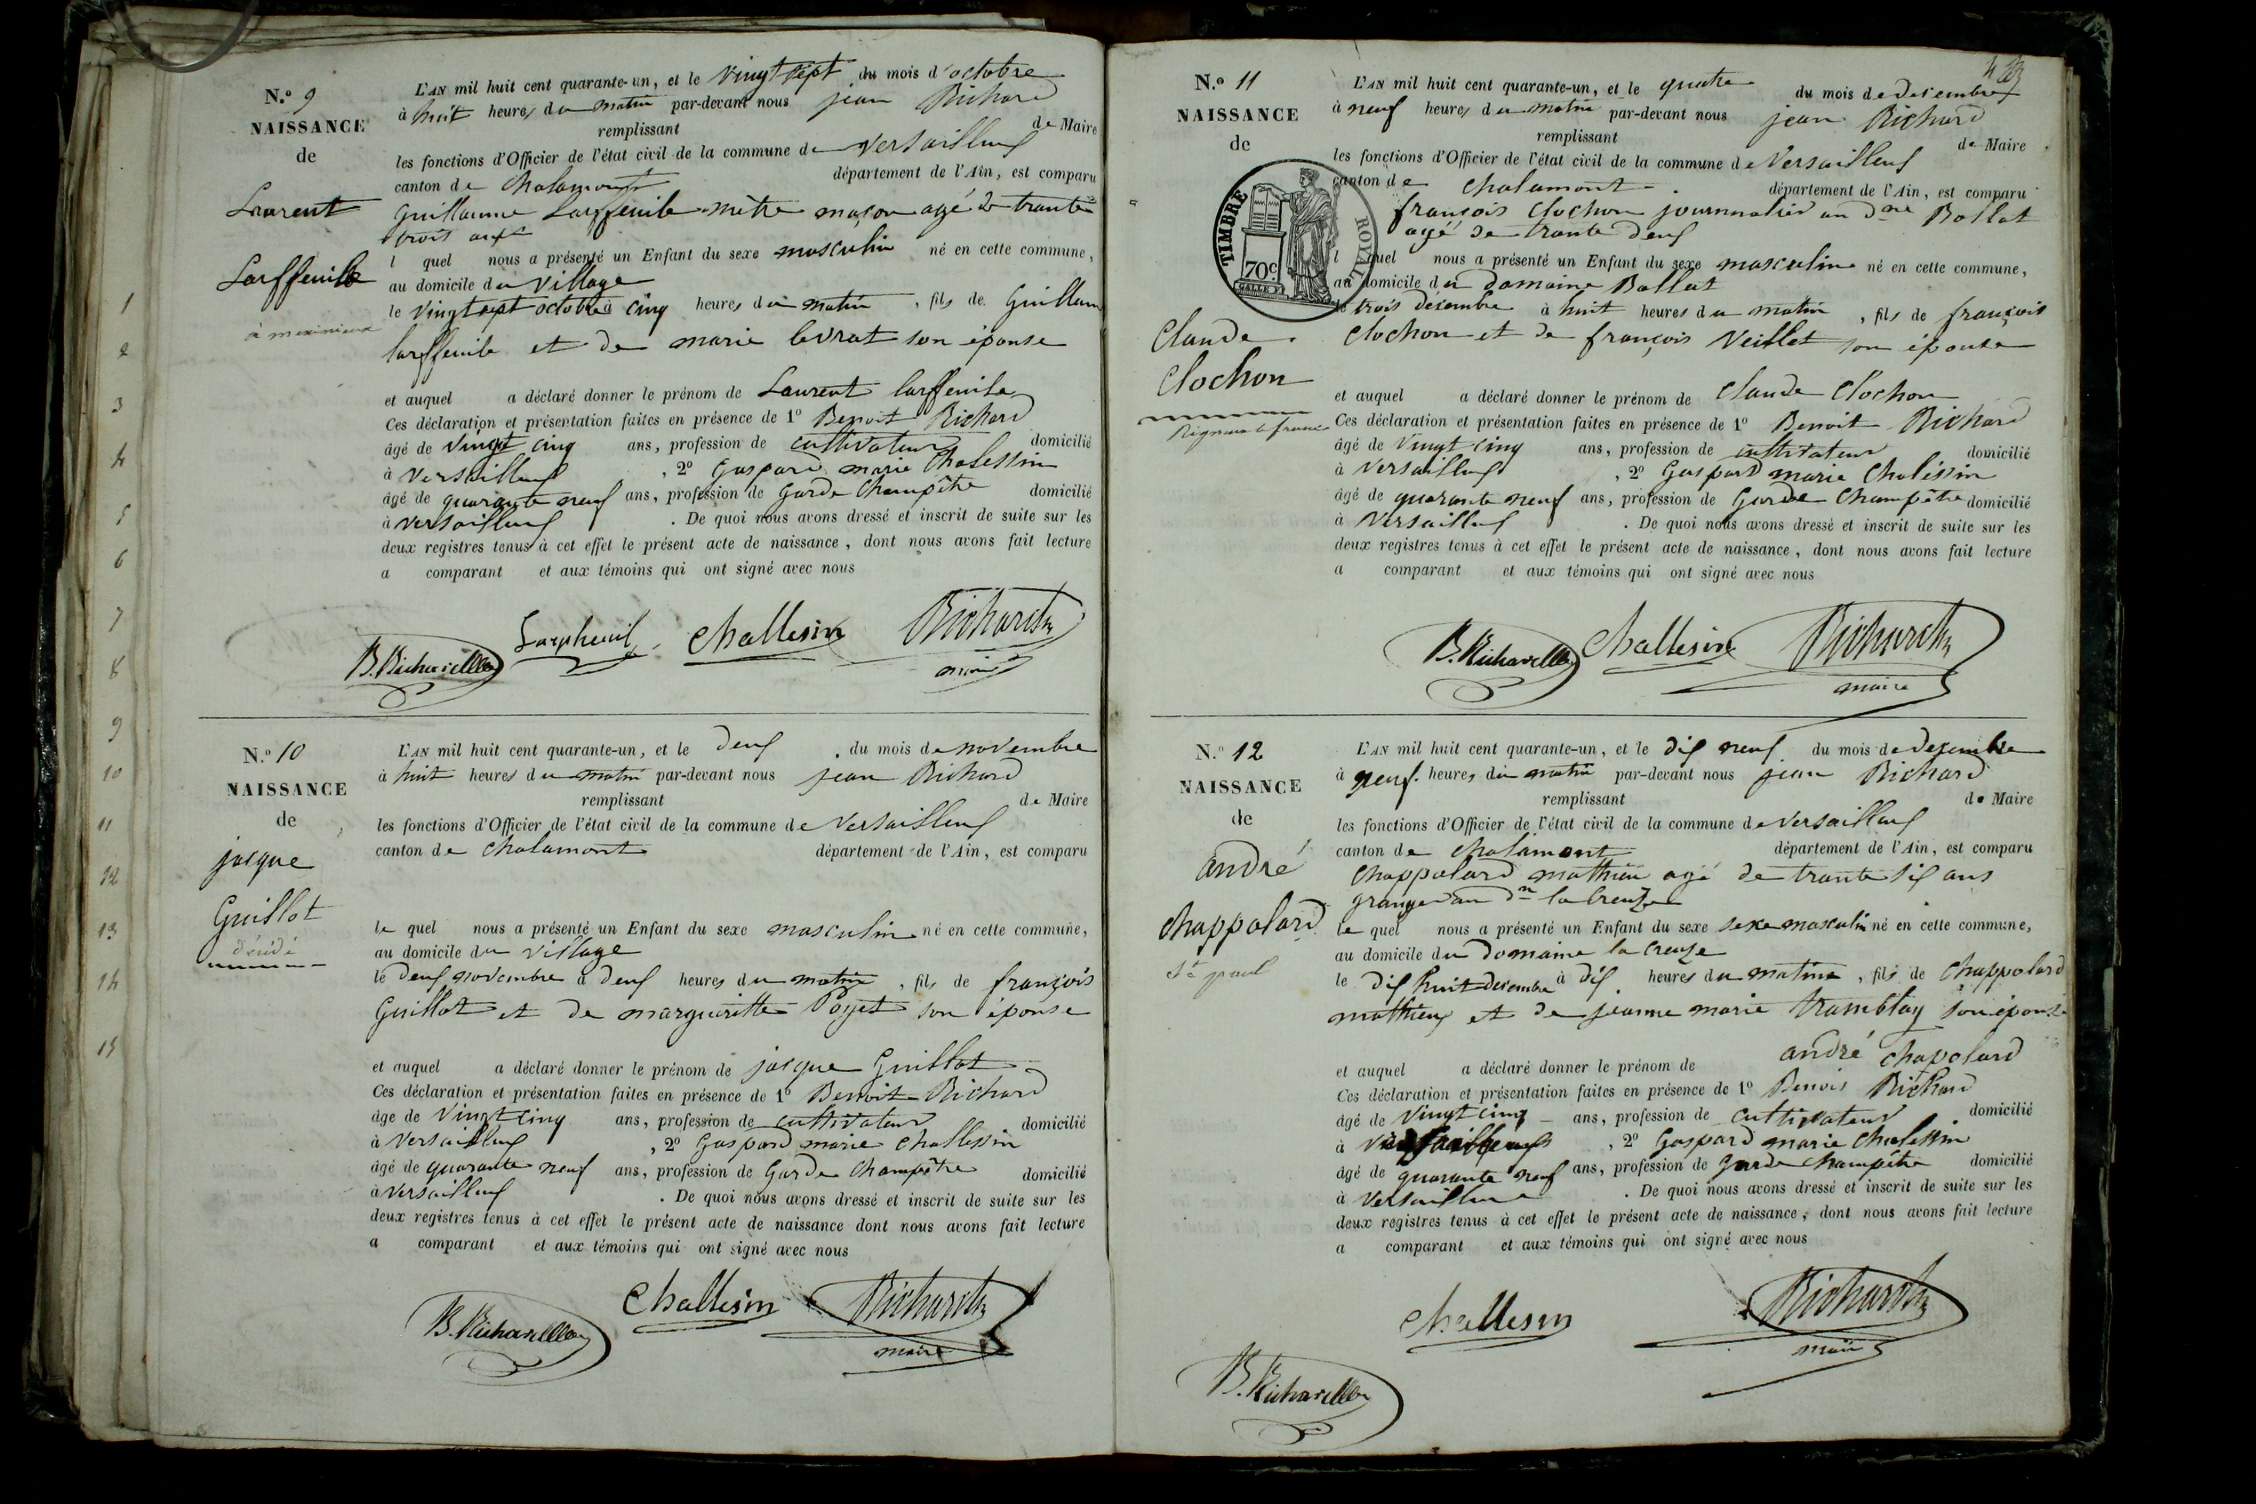 N.o 9
NAISSANCE
de
Laurent
Larffeuile
à meximieux
L'AN mil huit cent quarante-un, et le vingt sept du mois d'octobre
à huit heures du matin par-devant nous jean Richard
remplissant de Maire
les fonctions d'Officier de l'état civil de la commune de Versailleux
canton de chalamont département de l'Ain, est comparu
guillaume Larffeuile mètre maçon agé de trante
trois ans
l quel nous a présenté un Enfant du sexe masculin né en cette commune,
au domicile du village
le vingt sept octobre à cinq heures du matin, fils de Guillaume
larffeuile et de marie levrat son épouse
et auquel a déclaré donner le prénom de Laurent larffeuile
Ces déclaration et présentation faites en présence de 1o Benoit Richard
âgé de vingt cinq ans, profession de cultivateur domicilié
à Versailleux, 2o Gaspard marie Chalessin
âgé de quarante neuf ans, profession de Garde Champêtre domicilié
à Versailleux. De quoi nous avons dressé et inscrit de suite sur les
deux registres tenus à cet effet le présent acte de naissance, dont nous avons fait lecture
a comparant et aux témoins qui ont signé avec nous
B. Richard Larpheuil Challesin Richard
maire
1
2
3
4
5
6
7
8
9
10
11
12
13
14
15
N.o 10
NAISSANCE
de
jacque
Guillot
décédé
L'AN mil huit cent quarante-un, et le deux du mois de novembre
à huit heures du matin par-devant nous jean Richard
remplissant de Maire
les fonctions d'Officier de l'état civil de la commune de Versailleux
canton de chalamont département de l'Ain, est comparu
le quel nous a présenté un Enfant du sexe masculin né en cette commune,
au domicile du village
le deux novembre à deux heures du matin, fils de françois
Guillot et de margueritte Poyet son épouse
et auquel a déclaré donner le prénom de jacque Guillot
Ces déclaration et présentation faites en présence de 1o Benoit Richard
âge de vingt cinq ans, profession de cultivateur domicilié
à Versailleux, 2o Gaspard marie Challessin
âgé de quarante neuf ans, profession de Garde Champêtre domicilié
à Versailleux. De quoi nous avons dressé et inscrit de suite sur les
deux registres tenus à cet effet le présent acte de naissance dont nous avons fait lecture
a comparant et aux témoins qui ont signé avec nous
B. Richard Challesin Richard
maire
N.o 11
NAISSANCE
de
TIMBRE ROYAL
70c
Claude
Clochon
L'AN mil huit cent quarante-un, et le quatre du mois de desembre
à neuf heures du matin par-devant nous jean Richard
remplissant de Maire
les fonctions d'Officier de l'état civil de la commune de Versailleux
canton de chalamont département de l'Ain, est comparu
françois Clochon journnalier au dne Bollat
agé de trante deux
l quel nous a présenté un Enfant du sexe masculin né en cette commune,
au domicile du domaine Bollat
le trois desembre à huit heures du matin, fils de françois
Clochon et de françois Veillet son épouse
et auquel a déclaré donner le prénom de Claude Clochon
Ces déclaration et présentation faites en présence de 1o Benoit Richard
âgé de vingt cinq ans, profession de cultivateur domicilié
à Versailleux, 2o Gaspard marie Chalessin
âgé de quarante neuf ans, profession de Garde Champêtre domicilié
à Versailleux. De quoi nous avons dressé et inscrit de suite sur les
deux registres tenus à cet effet le présent acte de naissance, dont nous avons fait lecture
a comparant et aux témoins qui ont signé avec nous
B. Richard Challesin Richard
maire
N.o 12
NAISSANCE
de
andré
chappolard
St paul
L'AN mil huit cent quarante-un, et le dix neuf du mois de desembre
à neuf heures du matin par-devant nous jean Richard
remplissant de Maire
les fonctions d'Officier de l'état civil de la commune de Versailleux
canton de chalamont département de l'Ain, est comparu
chappolard mathieu agé de trante six ans
granger au dne la Creuze
le quel nous a présenté un Enfant du sexe sexe masculin né en cette commune,
au domicile du Domaine la Creuze
le dix huit desembre à dix heures du matin, fils de chappolard
mathieu et de jeanne marie tramblay son épouse
et auquel a déclaré donner le prénom de andré chapolard
Ces déclaration et présentation faites en présence de 1o Benois Richard
âgé de vingt cinq ans, profession de cultivateur domicilié
à Versailleux, 2o Gaspard marie Chalessin
âgé de quarante neuf ans, profession de garde champêtre domicilié
à Versailleux. De quoi nous avons dressé et inscrit de suite sur les
deux registres tenus à cet effet le présent acte de naissance, dont nous avons fait lecture
a comparant et aux témoins qui ont signé avec nous
Challesin Richard
maire
B. Richard